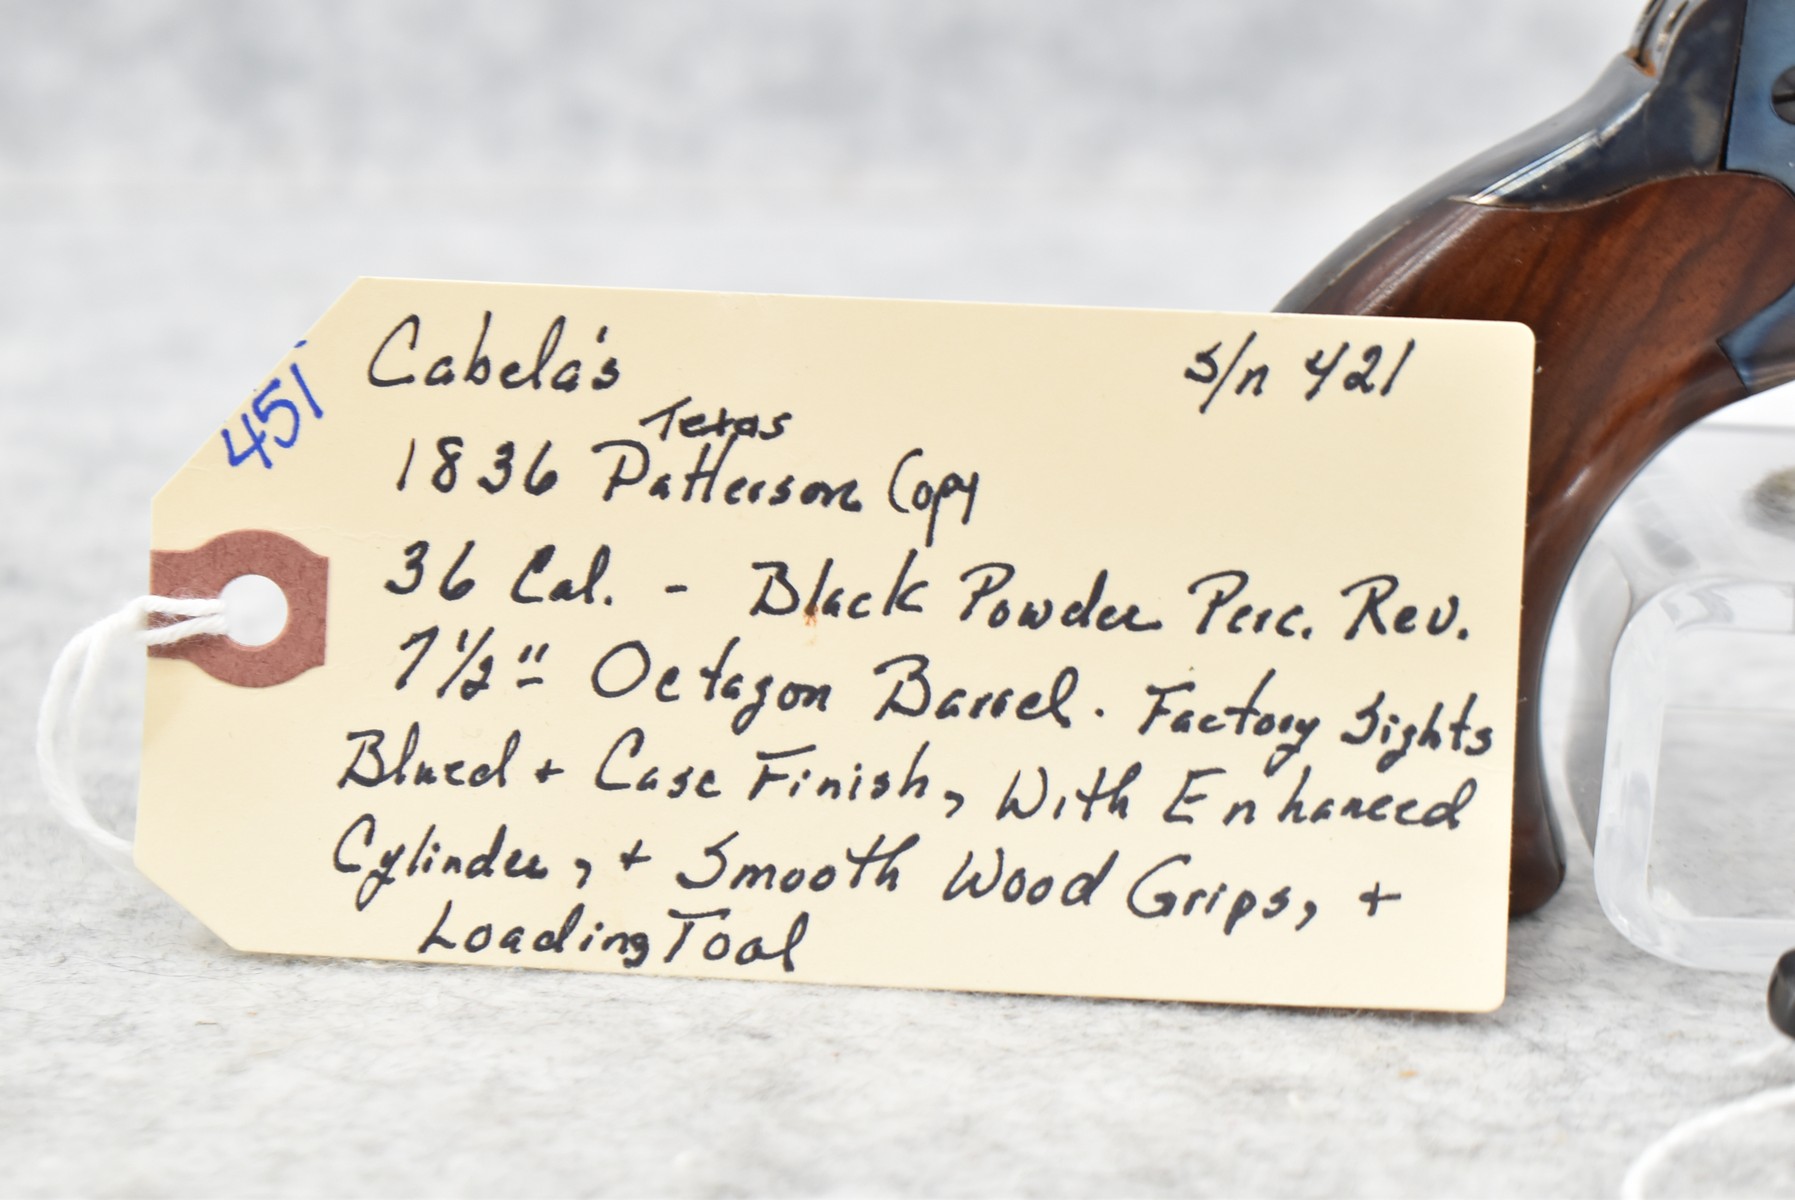 451
Cabela's s/n 421
Texas
1836 Patterson Copy
36 Cal. - Black Powder Perc. Rev.
7 1/2" Octagon Barrel. Factory Sights
Blued + Case Finish, With Enhanced
Cylinder, + Smooth Wood Grips, +
Loading Tool